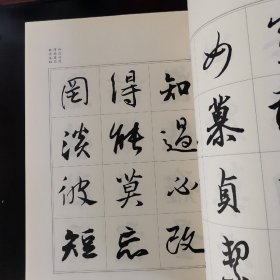 女慕貞絜
知過必改
得能莫忘
罔談彼短